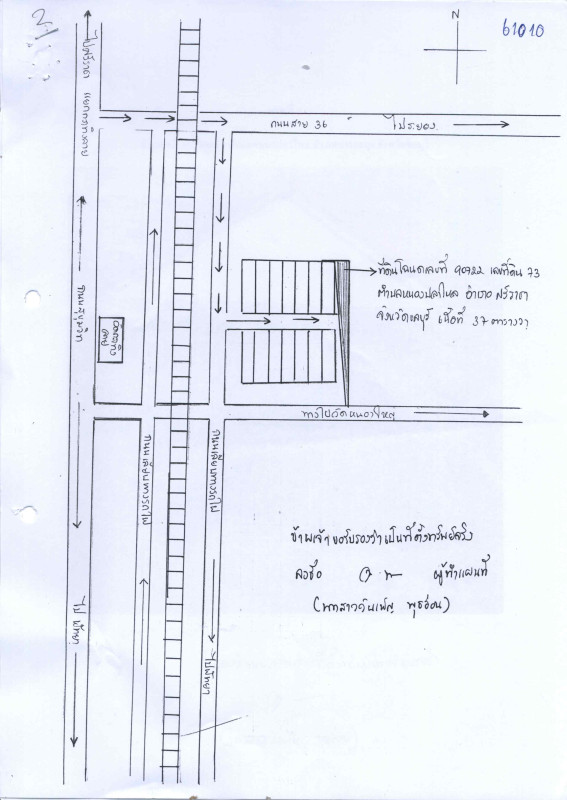 N
61010
ไปศรีราชา แยกกระทิงลาย
ถนนสาย 36
ไประยอง
ที่ดินโฉนดเลขที่ 90782 เลขที่ดิน 73
ตำบลหนองปลาไหล อำเภอ ศรีราชา
จังหวัดชลบุรี เนื้อที่ 37 ตารางวา
ถนนสุขุมวิท
ทางไปวัดหนองใหญ่
ถนนเลียบทางรถไฟ
ถนนเลียบทางรถไฟ
ข้าพเจ้าขอรับรองว่าเป็นที่ตั้งทรัพย์จริง
ลงชื่อ
ผู้ทำแผนที่
ไป พัทยา
ไปพัทยา